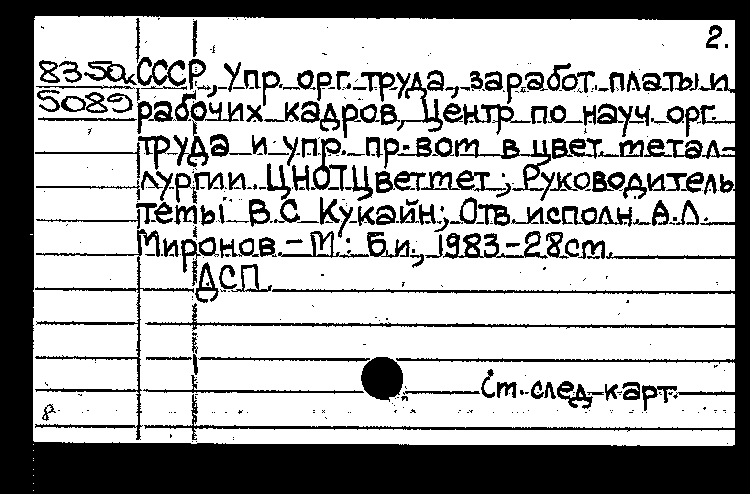 2.
83-50к СССР, Упр. орг. труда, заработ. платы и
5089 рабочих кадров, Центр по науч. орг.
труда и упр. пр-вом в цвет. метал-
лургии. ЦНОТЦветмет; Руководитель
темы В.С. Кукайн; Отв. исполн. А.Л.
Миронов. – М.: Б.и., 1983 – 28 ст.
ДСП.
См. след. карт.
8